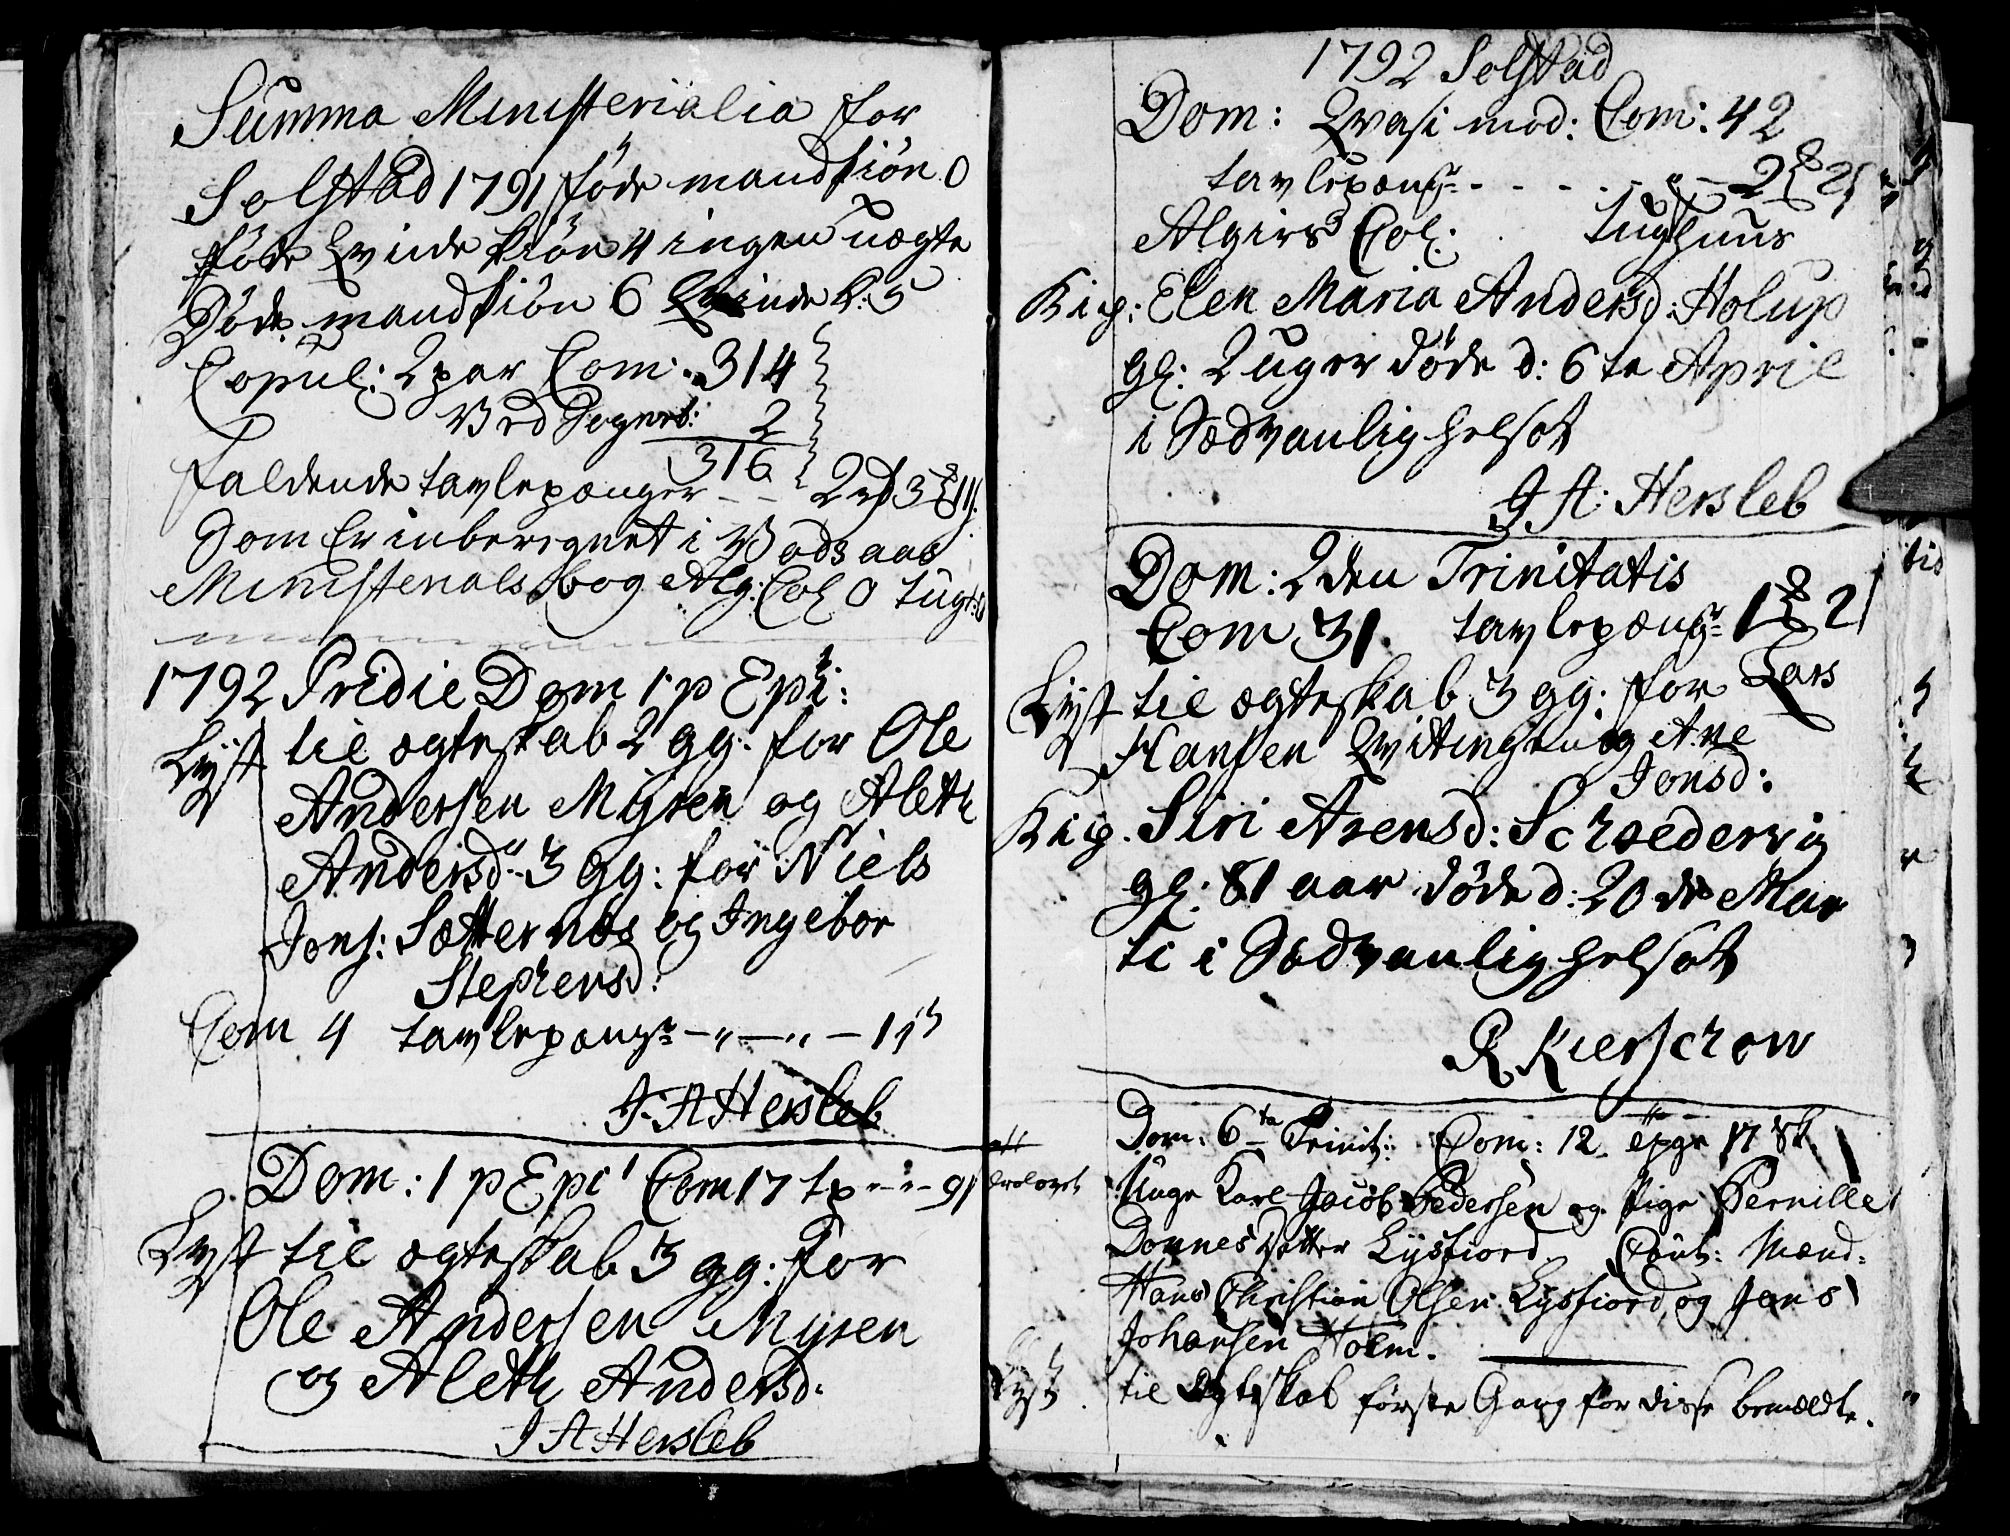 Summa Ministerialia for
Solstad 1791 føde mandkiøn 0
føde Qvinde kiøn 4 ingen uægte
Døde mandkiøn 6 Qvinde k: 5
Copul: 2 par Com: 314
Ved Sogneb: 2
316
faldende tavlepænger - - 2 rd 3
Som Er inberegnet i Vads aas
Ministerials bog Alg: Col 0 tugt: 0
1792 Pridie Dom 1 p Epi:
Lyst til ægteskab 2 gg: for Ole
Andersen Mysen og Aleth
Andersd: 3 gg: for Niels
Jons: Sætternæs og Ingebor
Stephensd:
Com 4 tavlepæng: - " - " - 11 s
J. A Hersleb
Dom: 1 p Epi Com 17 tp - " - " - 9 s
Lyst til ægteskab 3 gg: for
Ole Andersen Mysen
og Aleth Andersd:
J A Hersleb
1792 Solstad
Dom: Qvasi mod: Com: 42
tavlepæng: - - - - - 2 2 s
Algirs Col: tugthuus
Kig: Elen Maria Andersd: Holup
gl: 2 uger døde d: 6te April
i Sædvanlighelsot
J A: Hersleb
Dom: 2den Trinitatis
Com 31. tavlepæng: 1 2 s
Lyst til ægteskab 3 gg: for Lars
Hansen Qvitingen og Ane
Jonsd:
Kig. Siri Arensd: Schroedervig
gl: 81 aar døde d: 20de Mar
ti i Sædvanlighelsot
R Kierschow
Dom: 6ta Trinit: Com: 12. 17 sk
Unge Karl Jacob Pedersen og Pige Pernille
Donnes Datter Lysfiord. Caut: Mænd:
Hans Christian Olsen Lysfiord, og Jens
Johansen Holm.
Lyst til Egteskab første Gang for disse bemældte.